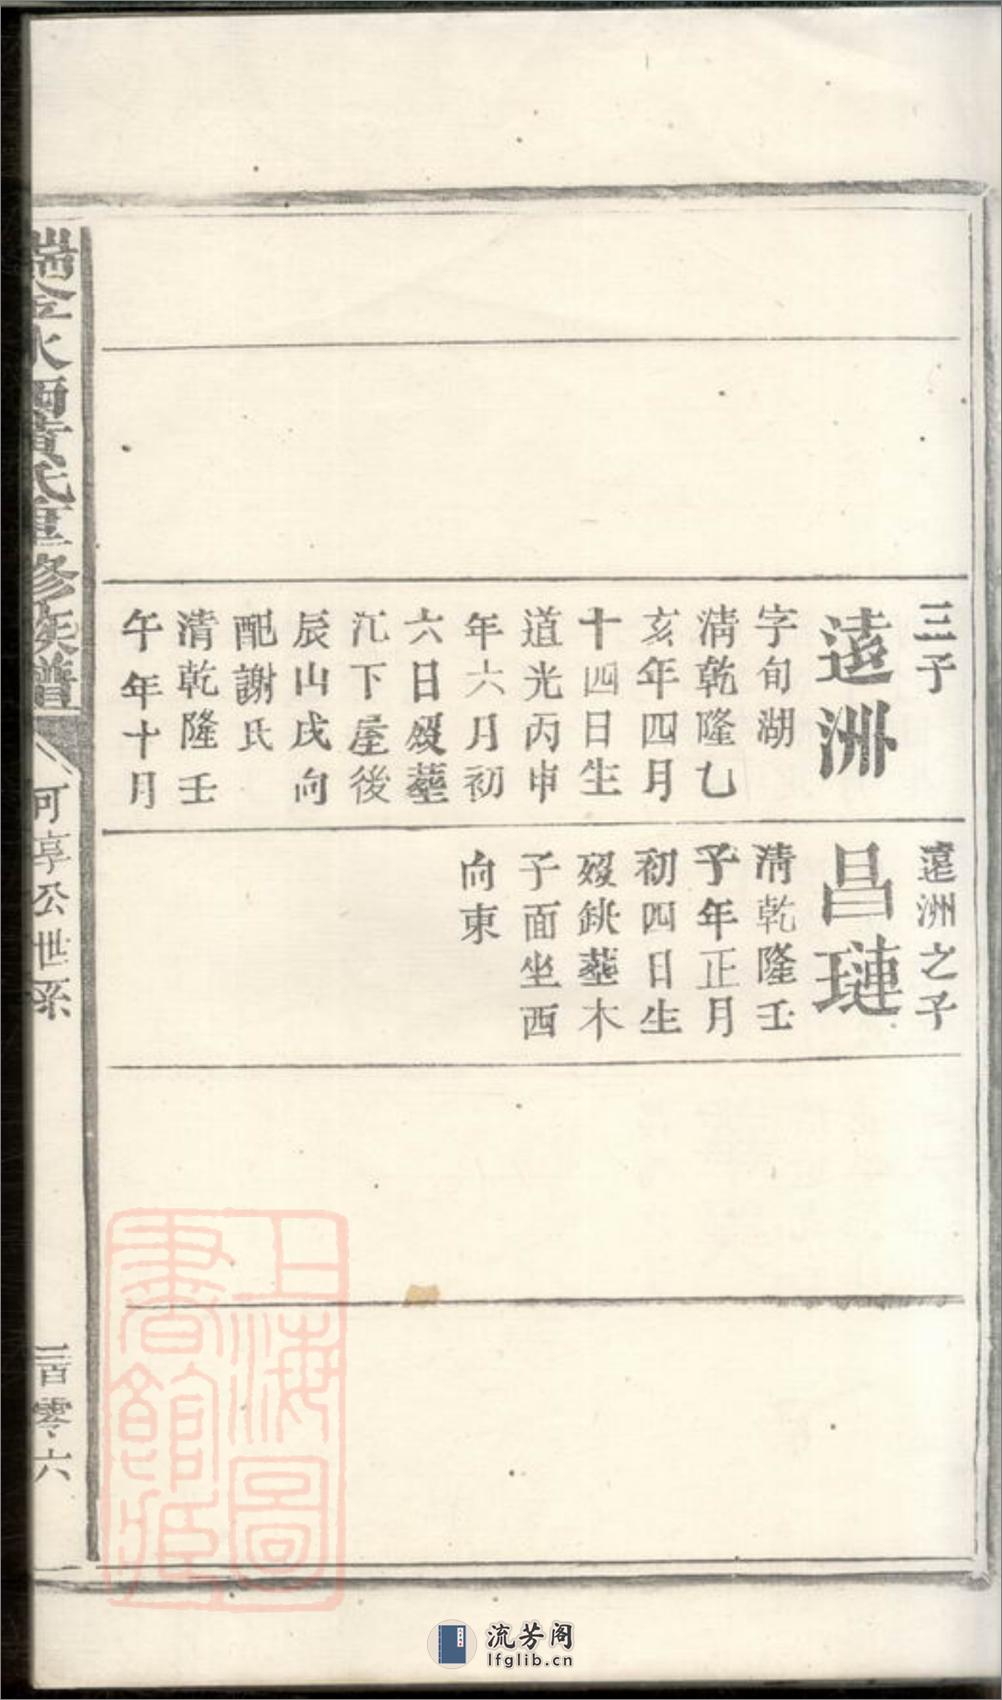 三子
遠洲
字旬湖
清乾隆乙
亥年四月
十四日生
道光丙申
年六月初
六日歿塟
氿下屋後
辰山戌向
配謝氏
清乾隆壬
午年十月
遠洲之子
昌璉
清乾隆壬
子年正月
初四日生
歿銚塟木
子面坐西
向東
瑞金水西黃氏重修族譜
可亨公世系
一百零六
上海圖
書館藏
流芳阁
lfglib.cn